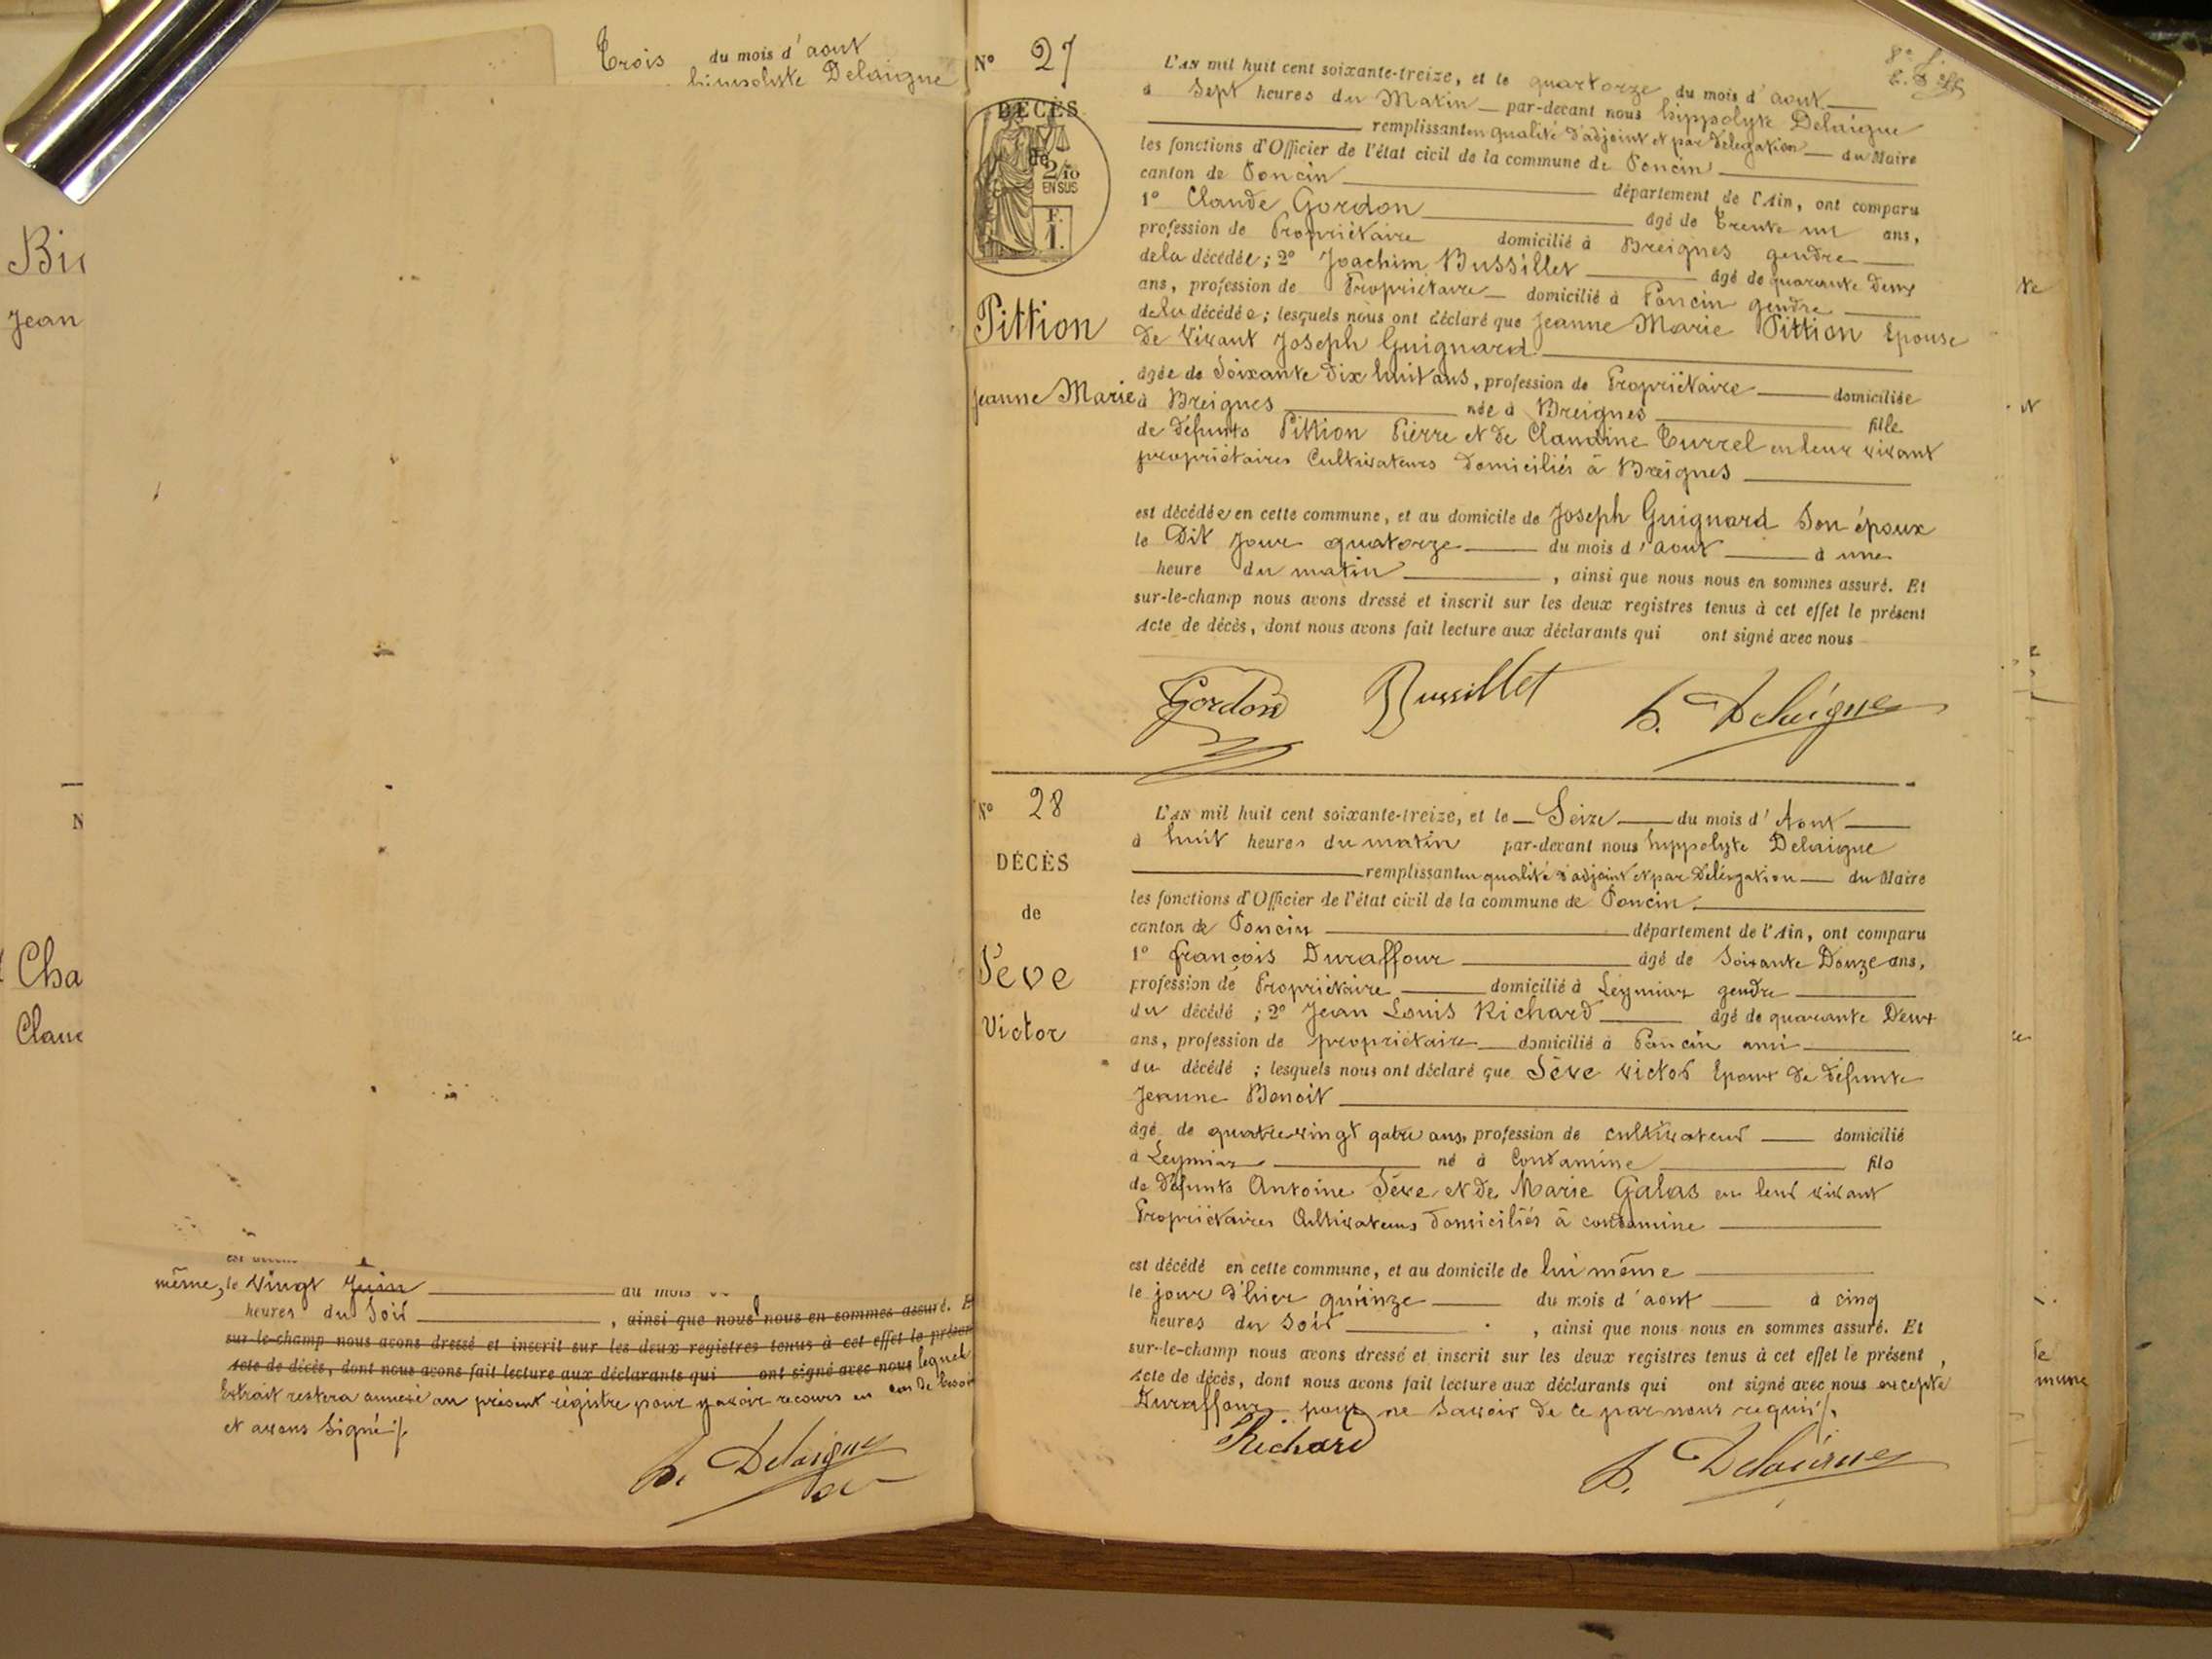 Trois du mois d'aout
hippolyte Delaigue
Bi
Jean
N
Cha
Clau
même, le vingt Juin du mois
heures du Soir , ainsi que nous nous en sommes assuré. E
sur-le-champ nous avons dressé et inscrit sur les deux registres tenus à cet effet le présen
acte de décès, dont nous avons fait lecture aux déclarants qui ont signé avec nous lequel
Extrait restera annexé au présent régistre pour y avoir recours en cas de besoin
et avons Signé ./.
h. Delaigue
N° 27
DÉCÈS
de
2/10
EN SUS
F.
1.
Pittion
Jeanne Marie
L'AN mil huit cent soixante-treize, et le quartorze du mois d'aout
à Sept heures du Matin par-devant nous hippolyte Delaigue
remplissant en qualité d'adjoint et par délégation du Maire
les fonctions d'Officier de l'état civil de la commune de Poncin
canton de Poncin département de l'Ain, ont comparu
1° Claude Gordon âgé de Trente un ans,
profession de Propriétaire domicilié à Breignes gendre
de la décédée ; 2° Joachim Bussillet âgé de quarante deux
ans, profession de Propriétaire domicilié à Poncin gendre
de la décédée ; lesquels nous ont déclaré que Jeanne Marie Pittion Epouse
de vivant Joseph Guignard
âgée de Soixante dix huit ans, profession de Propriétaire domiciliée
à Breignes née à Breignes fille
de défunts Pittion Pierre et de Claudine Turrel en leur vivant
propriétaires Cultivateurs domiciliés à Breignes
est décédée en cette commune, et au domicile de Joseph Guignard Son époux
le Dit Jour quatorze du mois d'aout à une
heure du matin , ainsi que nous nous en sommes assuré. Et
sur-le-champ nous avons dressé et inscrit sur les deux registres tenus à cet effet le présent
Acte de décès, dont nous avons fait lecture aux déclarants qui ont signé avec nous
Gordon Bussillet h. Delaigue
N° 28
DÉCÈS
de
Sève
Victor
L'AN mil huit cent soixante-treize, et le Seize du mois d'Aout
à huit heures du matin par-devant nous hippolyte Delaigue
remplissant en qualité d'adjoint et par Délégation du Maire
les fonctions d'Officier de l'état civil de la commune de Poncin
canton de Poncin département de l'Ain, ont comparu
1° François Duraffour âgé de Soixante Douze ans,
profession de Propriétaire domicilié à Leymiat gendre
du décédé ; 2° Jean Louis Richard âgé de quarante Deux
ans, profession de propriétaire domicilié à Poncin ami
du décédé ; lesquels nous ont déclaré que Sève victor Epoux de défunte
Jeanne Benoit
âgé de quatre vingt qatre ans, profession de cultivateur domicilié
à Leymiat né à Condamine fils
de défunts Antoine Sève et de Marie Galas en leur vivant
Propriétaires Cultivateurs domiciliés à condamine
est décédé en cette commune, et au domicile de lui même
le jour d'hier quinze du mois d'aout à cinq
heures du Soir , ainsi que nous nous en sommes assuré. Et
sur-le-champ nous avons dressé et inscrit sur les deux registres tenus à cet effet le présent
Acte de décès, dont nous avons fait lecture aux déclarants qui ont signé avec nous excepté
Duraffour pour ne Savoir de ce par nous requis ./.
Richard h. Delaigue